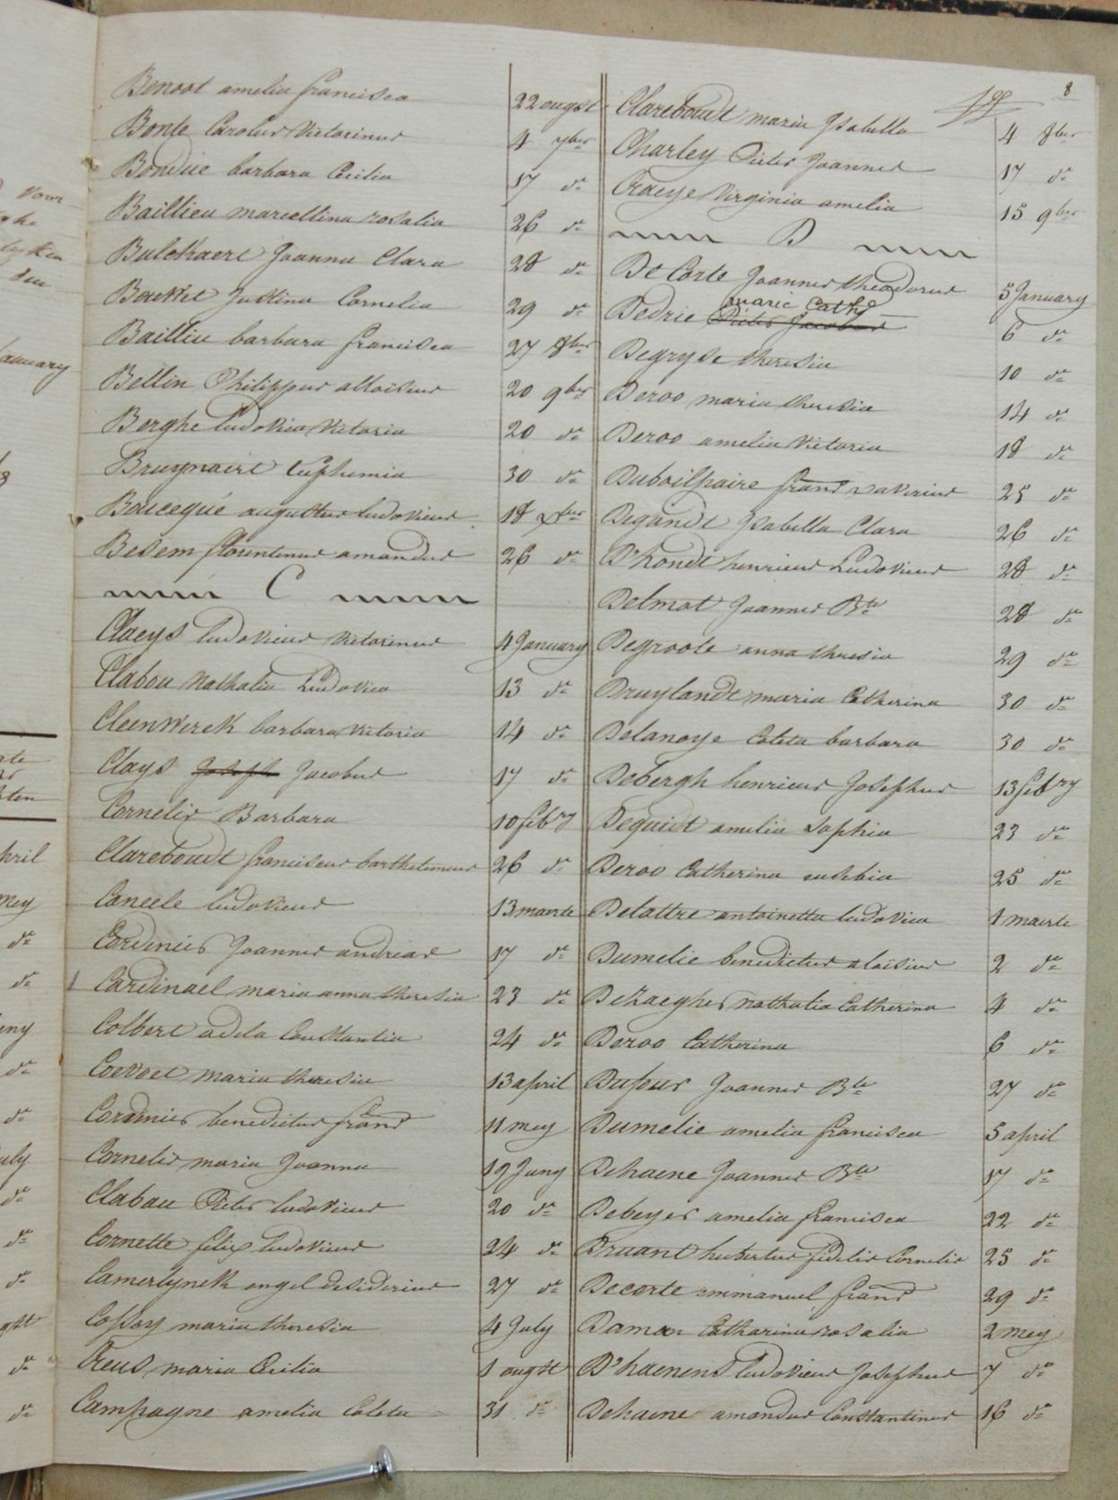 8
Benoot amelia francisca 22 augst
Bonte Carolus Victorinus 4 7ber
Bonduc barbara Cecilia 17 do
Baillieu marcellina rosalia 26 do
Bulckaert Joanna Clara 28 do
Bouttet Justina Cornelia 29 do
Baillieu barbara francisca 27 8ber
Bellin Philippus alloisius 20 9ber
Berghe Ludovica Victoria 20 do
Bruynaert Euphemia 30 do
Boucequé augustus ludovicus 18 xber
Besem florentinus amandus 26 do
C
Claeys ludovicus victorinus 4 January
Clabou Nathalia Ludovica 13 do
Cleenwerck barbara Victoria 14 do
Clays Joseph Jacobus 17 do
Cornelis Barbara 10 febry
Clareboudt franciscus bartholomeus 26 do
Caneele ludovicus 13 maarte
Cordenier Joannes andreas 17 do
Cardinael maria anna theresia 23 do
Colbert adela Constantia 24 do
Coevoet maria theresia 13 april
Cordenier benedictus frans 11 mey
Cornelis maria Joanna 19 Juny
Clabau Pieter ludovicus 20 do
Cornette felix ludovicus 24 do
Camerlynck angel desiderius 27 do
Cossey maria theresia 4 July
Creus maria Cecilia 1 augst
Campagne amelia Coleta 31 do
Clareboudt maria Isabella 4 8ber
Charley Pieter Joannes 17 do
Craeye Virginia amelia 15 9ber
D
De Corte Joannes theodorus 5 January
marie Cath
Dedrie Pieter Jacobus 6 do
Degryse theresia 10 do
Deroo maria theresia 14 do
Deroo amelia Victoria 18 do
Duboilpaire frans xaverius 25 do
Degandt Isabella Clara 26 do
D'hondt henricus Ludovicus 28 do
Delmot Joannes Bte 28 do
Degroote anna theresia 29 do
Druylandt maria Catherina 30 do
Delanoye Coleta barbara 30 do
Debergh henricus Josephus 13 febry
Dequidt amelia Sophia 23 do
Deroo Catherina eusebia 25 do
Delattre antoinetta ludovica 1 maerte
Dumelie benedictus aloisius 2 do
Dekaeghel nathalia Catherina 4 do
Deroo Catherina 6 do
Dufour Joannes Bte 27 do
Dumelie amelia francisca 5 april
Dehaene Joannes Bte 17 do
Debeyer amelia francisca 22 do
Druant hubertus fidelis Cornelis 25 do
Decorte emmanuel frans 29 do
Daman Catharina rosalia 2 mey
D'haenens ludovicus Josephus 7 do
Dehaene amandus Constantinus 16 do